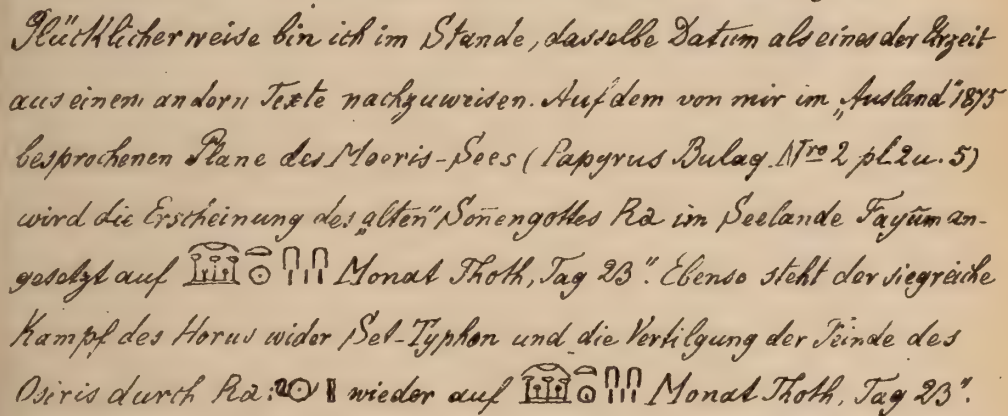 Glücklicherweise bin ich im Stande, dasselbe Datum als eines der Urzeit
aus einem andern Texte nachzuweisen. Auf dem von mir im „Ausland" 1875
besprochenen Plane des Moeris-Sees (Papyrus Bulaq Nro 2 pl 2 u. 5)
wird die Erscheinung des „alten" Sonnengottes Ra im Seelande Fayûm an-
gesetzt auf Monat Thoth, Tag 23". Ebenso steht der siegreiche
Kampf des Horus wider Set-Typhon und die Vertilgung der Feinde des
Osiris durch Ra: wieder auf Monat Thoth, Tag 23".